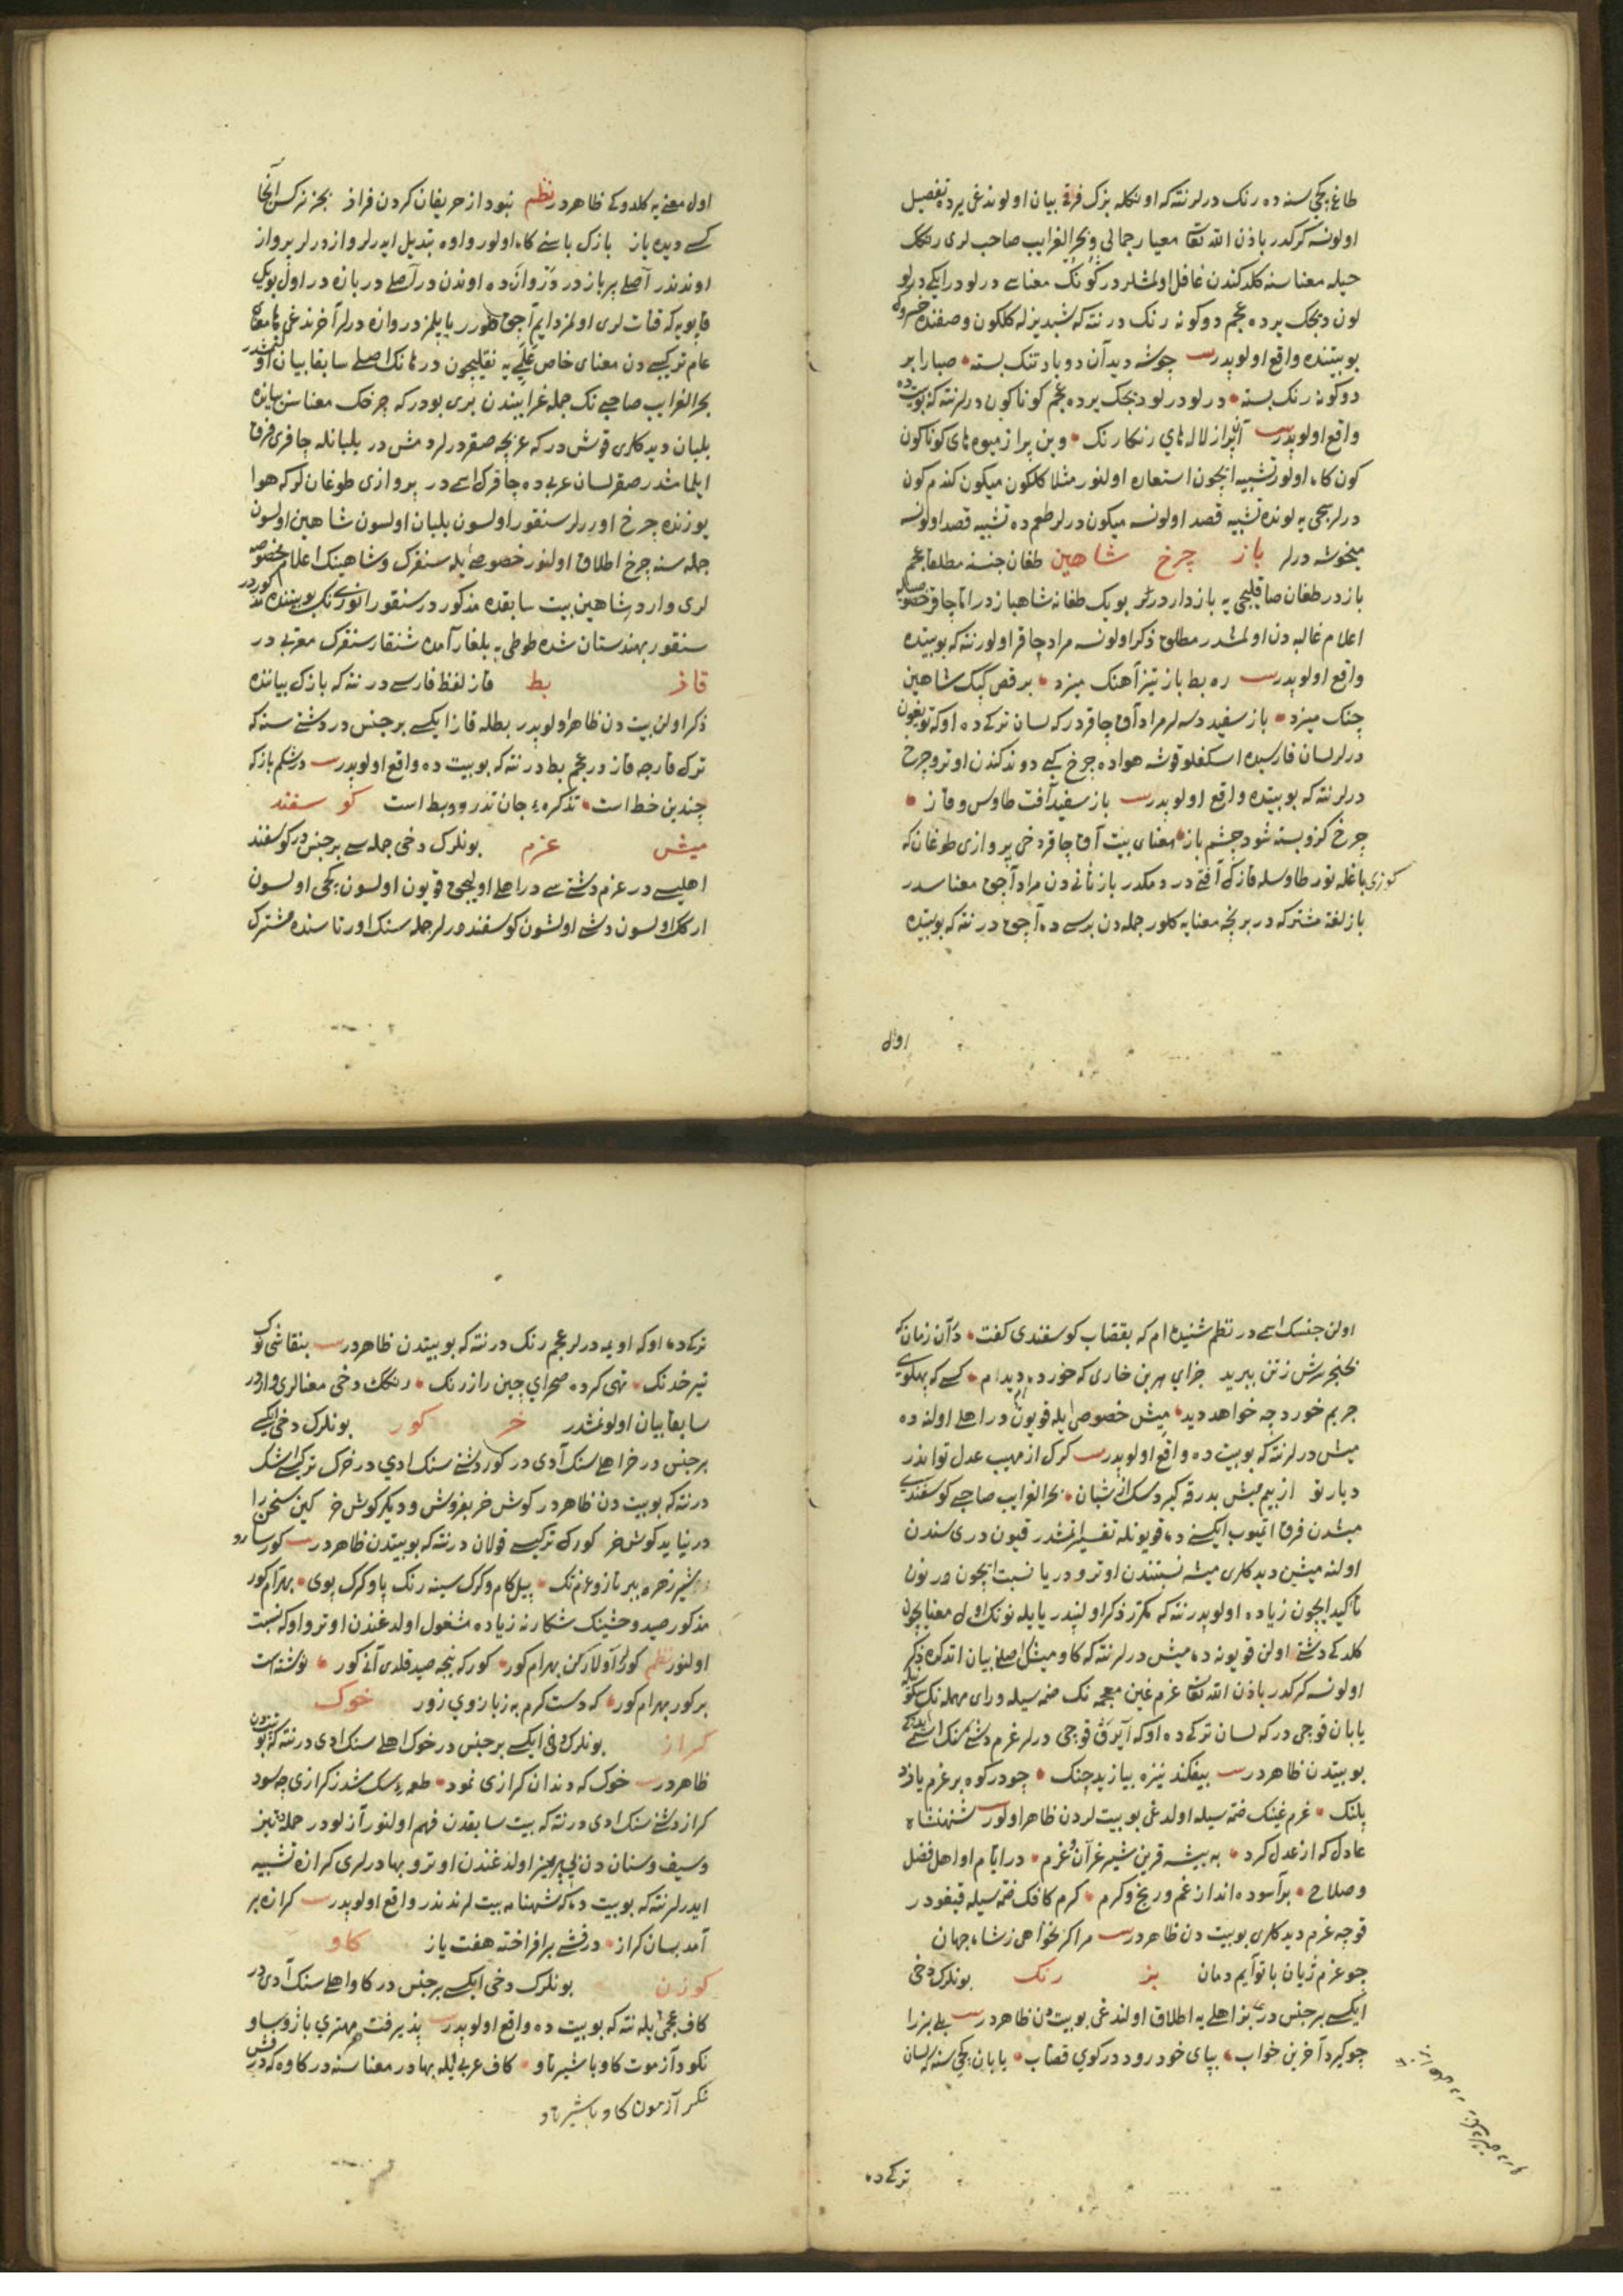 طاغ كچیسنه ده رنك درلر نته كه اونكله بزك فرقی بیان اولوندغی یرده تفصیل
اولونسه كركدر باذن الله تعا معیار جمالی وبحر الغرایب صاحب لری رنكك
حیله معناسنه كلدكندن غافل اولمشلر در كونك معناسی درلو در ایكی درلو
لون دیجك یرده عجم دوكونه رنك در نته كه شبدیزله كلكون وصفنده خسروك
بو بیتنده واقع اولوبدر بیت چو شه دید آن دو باد تنك بسته صبا را بر
دوكونه رنك بسته درلو درلو دیجك یرده عجم كوناكون درلر نته كه بو بیت ده
واقع اولوبدر بیت آن پر از لاله های رنكارنك وین پر از میوه های كوناكون
كون كاه اولور تشبیه ایچون استعاره اولنور مثلا كلكون میكون كندم كون
درلر سجی یه لونده تشبیه قصد اولونسه میكون درلر طعم ده تشبیه قصد اولونسه
میخوشه درلر باز چرخ شاهین طغان جنسنه مطلقا عجم
باز در طغان صاقلیجی یه بازدار درلر بویك طغانه شاهباز در اما چاقر خصوصیله
اعلام غالبه دن اولمشدر مطلق ذكر اولونسه مراد چاقر اولور نته كه بو بیتده
واقع اولوبدر بیت ره بط باز تیز آهنك میزد برقص كبك شاهین
چنك میزد باز سفید دسه لر مراد آق چاقر در كه لسان تركی ده اوكه تویغون
درلر لسان فارسیده اسكفلو قوشه هواده چرخ كبی دوندكندن اوترو چرخ
درلر نته كه بو بیتده واقع اولوبدر بیت باز سفید آفت طاوس وقاز
چرخ كزو بسته شود چشم باز معنای بیت آق چاقر دخی پروازی طوغان كه
كوزی باغلنور طاوسله قازك آفتی در دمكدر باز ثانی دن مراد آچق معناسدر
باز لغة مشتركه در بر نچه معنایه كلور جمله دن برسی ده آچق در نته كه بو بیتده
اول
اول معنی یه كلدوكی ظاهر در نظم نبود از حریفان كردن فراز بجز نركس آنجا
كسی دیده باز بازك باسنی كاه اولور واوه تبدیل ایدرلر واز درلر پرواز
اوندندر آصلی پرباز در دروازه ده اوندن در آصلی دربازه در اول بویك
قاپویه كه قنات لری اولمز دایم آچق طورر یاپلمز دروازه درلر آخر ندغی ها معنای
عام تركیبی دن معنای خاص علمی یه نقلیچون در هانك اصلی سابقا بیان اولنمشدر
بحر الغرایب صاحبی نك جمله غرایبندن بری بودر كه چرخك معناسن بیانده
بلبان دیدكلری قوش در كه عربچه صقر درلر دمش در بلبانله چاقری فرق
ایلمامشدر صقر لسان عربی ده چاقرك اسمی در پروازی طوغانلر كه هوا
یوزنده چرخ اوررلر سنقور اولسون بلبان اولسون شاهین اولسون
جمله سنه چرخ اطلاق اولنور خصوصی ایله سنقرك وشاهینك اعلام مخصوصه
لری وارد شاهین بیت سابقده مذكور در سنقور انورینك بو بیتنده مذكوردر
سنقور بهندستان شده طوطی به بلغار آمده شنقار سنقرك معربی در
قاز بط قاز لفظ فارسی در نته كه بازك بیاننده
ذكر اولن بیت دن ظاهر اولوبدر بطله قاز ایكسی بر جنس در دشتی سنه كه
ترك قارجه قاز در عجم بط در نته كه بو بیت ده واقع اولوبدر بیت در شكم باز كه
چندین خط است تذكرهٔ جان تذرو وبط است كو سفند
میش غرم بونلرك دخی جمله سی بر جنس در كوسفند
اهلیسی در غرم دشتی سی در اهلی اولیجق قویون اولسون كچی اولسون
اركك اولسون دشی اولسون كوسفند درلر جمله سنك اورتاسنده مشترك
اولن جنسك اسمی در نظم شنیده ام كه بقصاب كوسفندی كفت در آن زمان كه
بخنجر سرش ز تن ببرید جزای هر بن خاری كه خوردم دیدم كسی كه پهلوی
چربم خورد چه خواهد دید میش خصوصی ایله قویون در اهلی اولنه ده
میش درلر نته كه بو بیت ده واقع اولوبدر بیت كرك از مهیب عدل تو اندر
دیار تو از بیم میش بدرقه كیرد سكان شبان بحر الغرایب صاحبی كوسفندی
میشدن فرق اتمیوب ایكسنی ده قویونله تفسیر اتمشدر قیون دریسندن
اولنه میشین دیدكلری میشه نسبتندن اوترو در یا نسبت ایچون در نون
تاكید ایچون زیاده اولوبدر نته كه مكرر ذكر اولنبدر یا یله نونك اول معنا ایچون
كلدكی دشتی اولن قویونه ده میش درلر نته كه كاومیشك اصلنی بیان اتدكده ذكر
اولونسه كركدر باذن الله تعا غرم غین معجمه نك ضمه سیله ورای مهمله نك سكونیله
یابان قوچی در كه لسان تركی ده اوكه آیرق قوچی درلر غرم دشتی سنك اسمی ایدوكی
بو بیتدن ظاهر در بیت بیفكند نیزه بیازید چنك چو در كوه بر غرم یازد
پلنك غرم غینك ضمه سیله اولدغی بو بیت لردن ظاهر اولور بیت شهنشاه
عادل كه از عدل كرد به بیشه قرین شیر غران وغرم در ایام او اهل فضل
وصلاح بر آسوده اند از غم ورنج وكرم كرم كافك ضمه سیله قیغو در
قوچه غرم دیدكلری بو بیت دن ظاهر در بیت مرا كر بخواهی ز شاه جهان
چو غرم ژیان با تو آیم دمان بز رنك بونلرك دخی
ایكسی بر جنس در بز اهلی یه اطلاق اولندغی بو بیت دن ظاهر در بیت بلی بز را
چو كیرد آخرین خواب بپای خود رود در كوی قصاب یابان كچیسنه كه لسان
تركی ده
تركی ده اوكه اویمه درلر عجم رنك در نته كه بو بیتدن ظاهر در بیت بنقاشی نوك
تیر خدنك تهی كرده صحرای چین را ز رنك رنكك دخی معنالری وارد در
سابقا بیان اولونمشدر خر كور بونلرك دخی ایكسی
بر جنس در خر اهلی سنك آدی در كور دشتی سنك ادی در خرك تركیسی اشك
در نته كه بو بیت دن ظاهر در كوش خر بفروش ودیكر كوش خر كین سخن را
در نیاید كوش خر كورك تركیسی قولان در نته كه بو بیتدن ظاهر در بیت كور سارو
شیر زهره ببر تاز وغرم تك پیل كام وكرك سینه رنك پا وكرك پوی بهرام كور
مذكور صید وحشینك شكارنه زیاده مشغول اولدغندن اوترو اوكه نسبت
اولنور نظم كوركه آولاركن بهرام كور كور كه نیجه صید قلدی آنی كور نوشته است
بر كور بهرام كور كه دست كرم به ز بازوی زور خوك
كراز بونلرك دخی ایكسی بر جنس در خوك اهلی سنك ادی در نته كه بو بیتدن
ظاهر در بیت خوك كه دندان كرازی نمود طعمهٔ سك شد ز كرازی چه سود
كراز دشتی سنك ادی در نته كه بیت سابقدن فهم اولنور آزلو در حمله ده تیز
وسیف وسنان دن بی پرهیز اولدغندن اوترو بهادرلری كرازه تشبیه
ایدرلر نته كه بو بیت ده كه شهنامه بیت لرندندر واقع اولوبدر بیت كرازه بر
آمد بسان كراز درفشی بر افراخته هفت یاز كاو
كوزن بونلرك دخی ایكسی بر جنس در كاو اهلی سنك آدی در
كاف عجمی ایله نته كه بو بیت ده واقع اولوبدر بیت پذیرفت مهتری با زور وساو
نكود آزموت كاو با شیر تاو كاف عربی ایله بهادر معناسنه در كاوه كه درفش
نكر آزمون كاو با شیر تاو